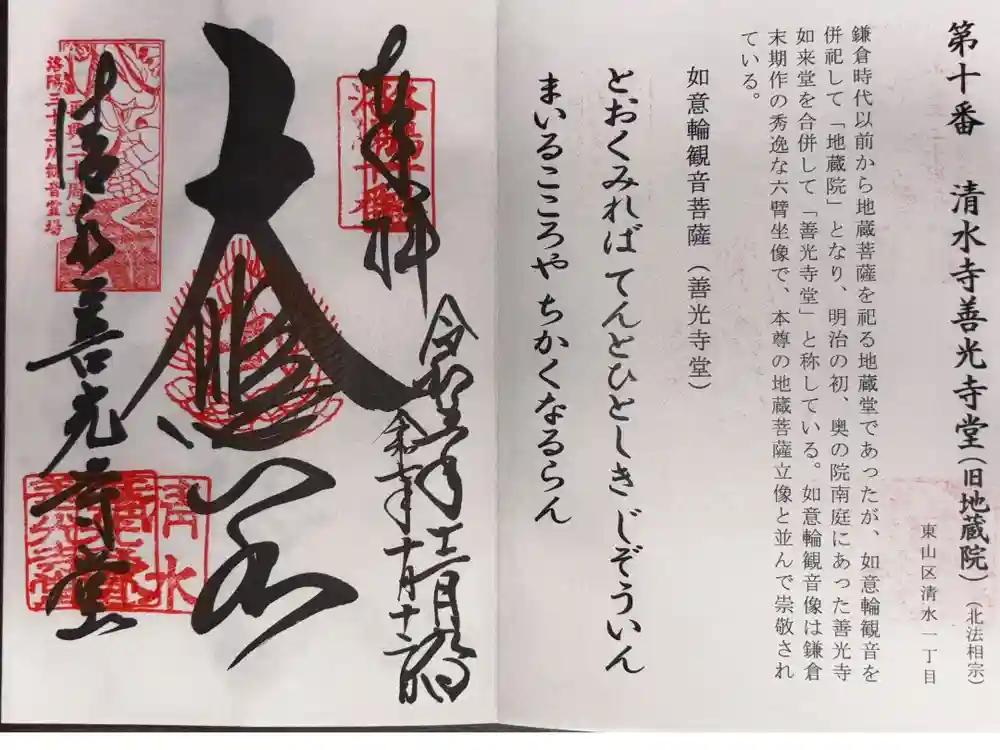 第十番　清水寺善光寺堂(旧地蔵院)(北法相宗)
東山区清水一丁目
鎌倉時代以前から地蔵菩薩を祀る地蔵堂であったが、如意輪観音を
併祀して「地蔵院」となり、明治の初、奥の院南庭にあった善光寺
如来堂を合併して「善光寺堂」と称している。如意輪観音像は鎌倉
末期作の秀逸な六臂坐像で、本尊の地蔵菩薩立像と並んで崇敬され
ている。
如意輪観音菩薩（善光寺堂）
とおくみれば てんとひとしき じぞういん
まいるこころや ちかくなるらん
奉拝
大悲閣
清水善光寺堂
洛陽三十三所観音霊場
清水